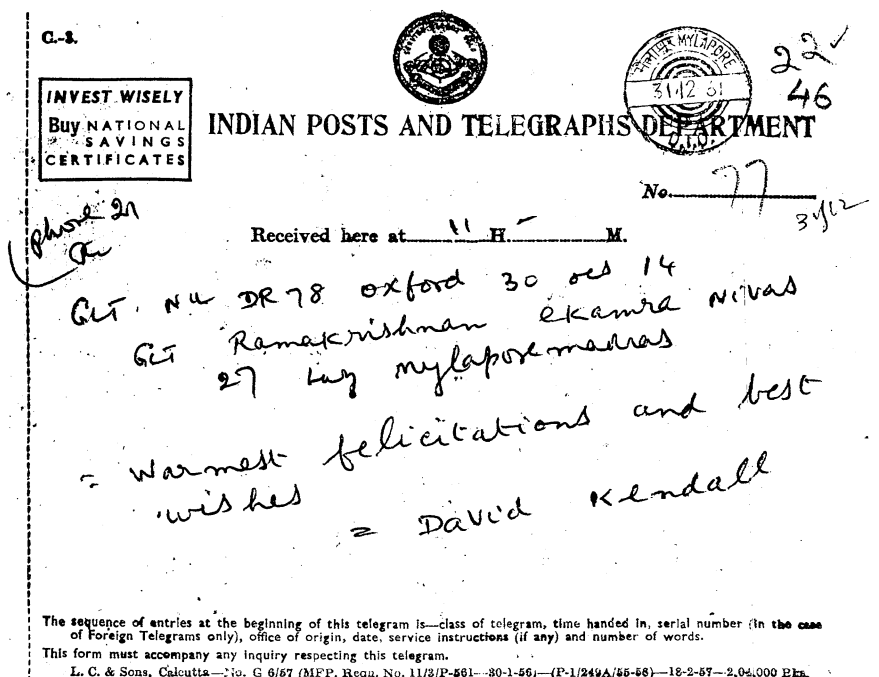 C.-3.
INVEST WISELY
Buy NATIONAL
SAVINGS
CERTIFICATES
MYLAPORE
31 12 61
D.T.O.
22
46
INDIAN POSTS AND TELEGRAPHS DEPARTMENT
No. 77
31/12
phone 21
Received here at 11 H. M.
GLT. DR 78 oxford 30 14
GLT Ramakrishnan ekamra Nivas
27 Luz mylapore madras
= Warmest felicitations and best
wishes
= David Kendall
The sequence of entries at the beginning of this telegram is—class of telegram, time handed in, serial number (in the case
of Foreign Telegrams only), office of origin, date, service instructions (if any) and number of words.
This form must accompany any inquiry respecting this telegram.
L. C. & Sons, Calcutta—No. G 6/57 (MFP. Regn. No. 11/3/P-561—30-1-56)—(P-1/249A/55-56)—18-2-57—2,04,000 Bks.